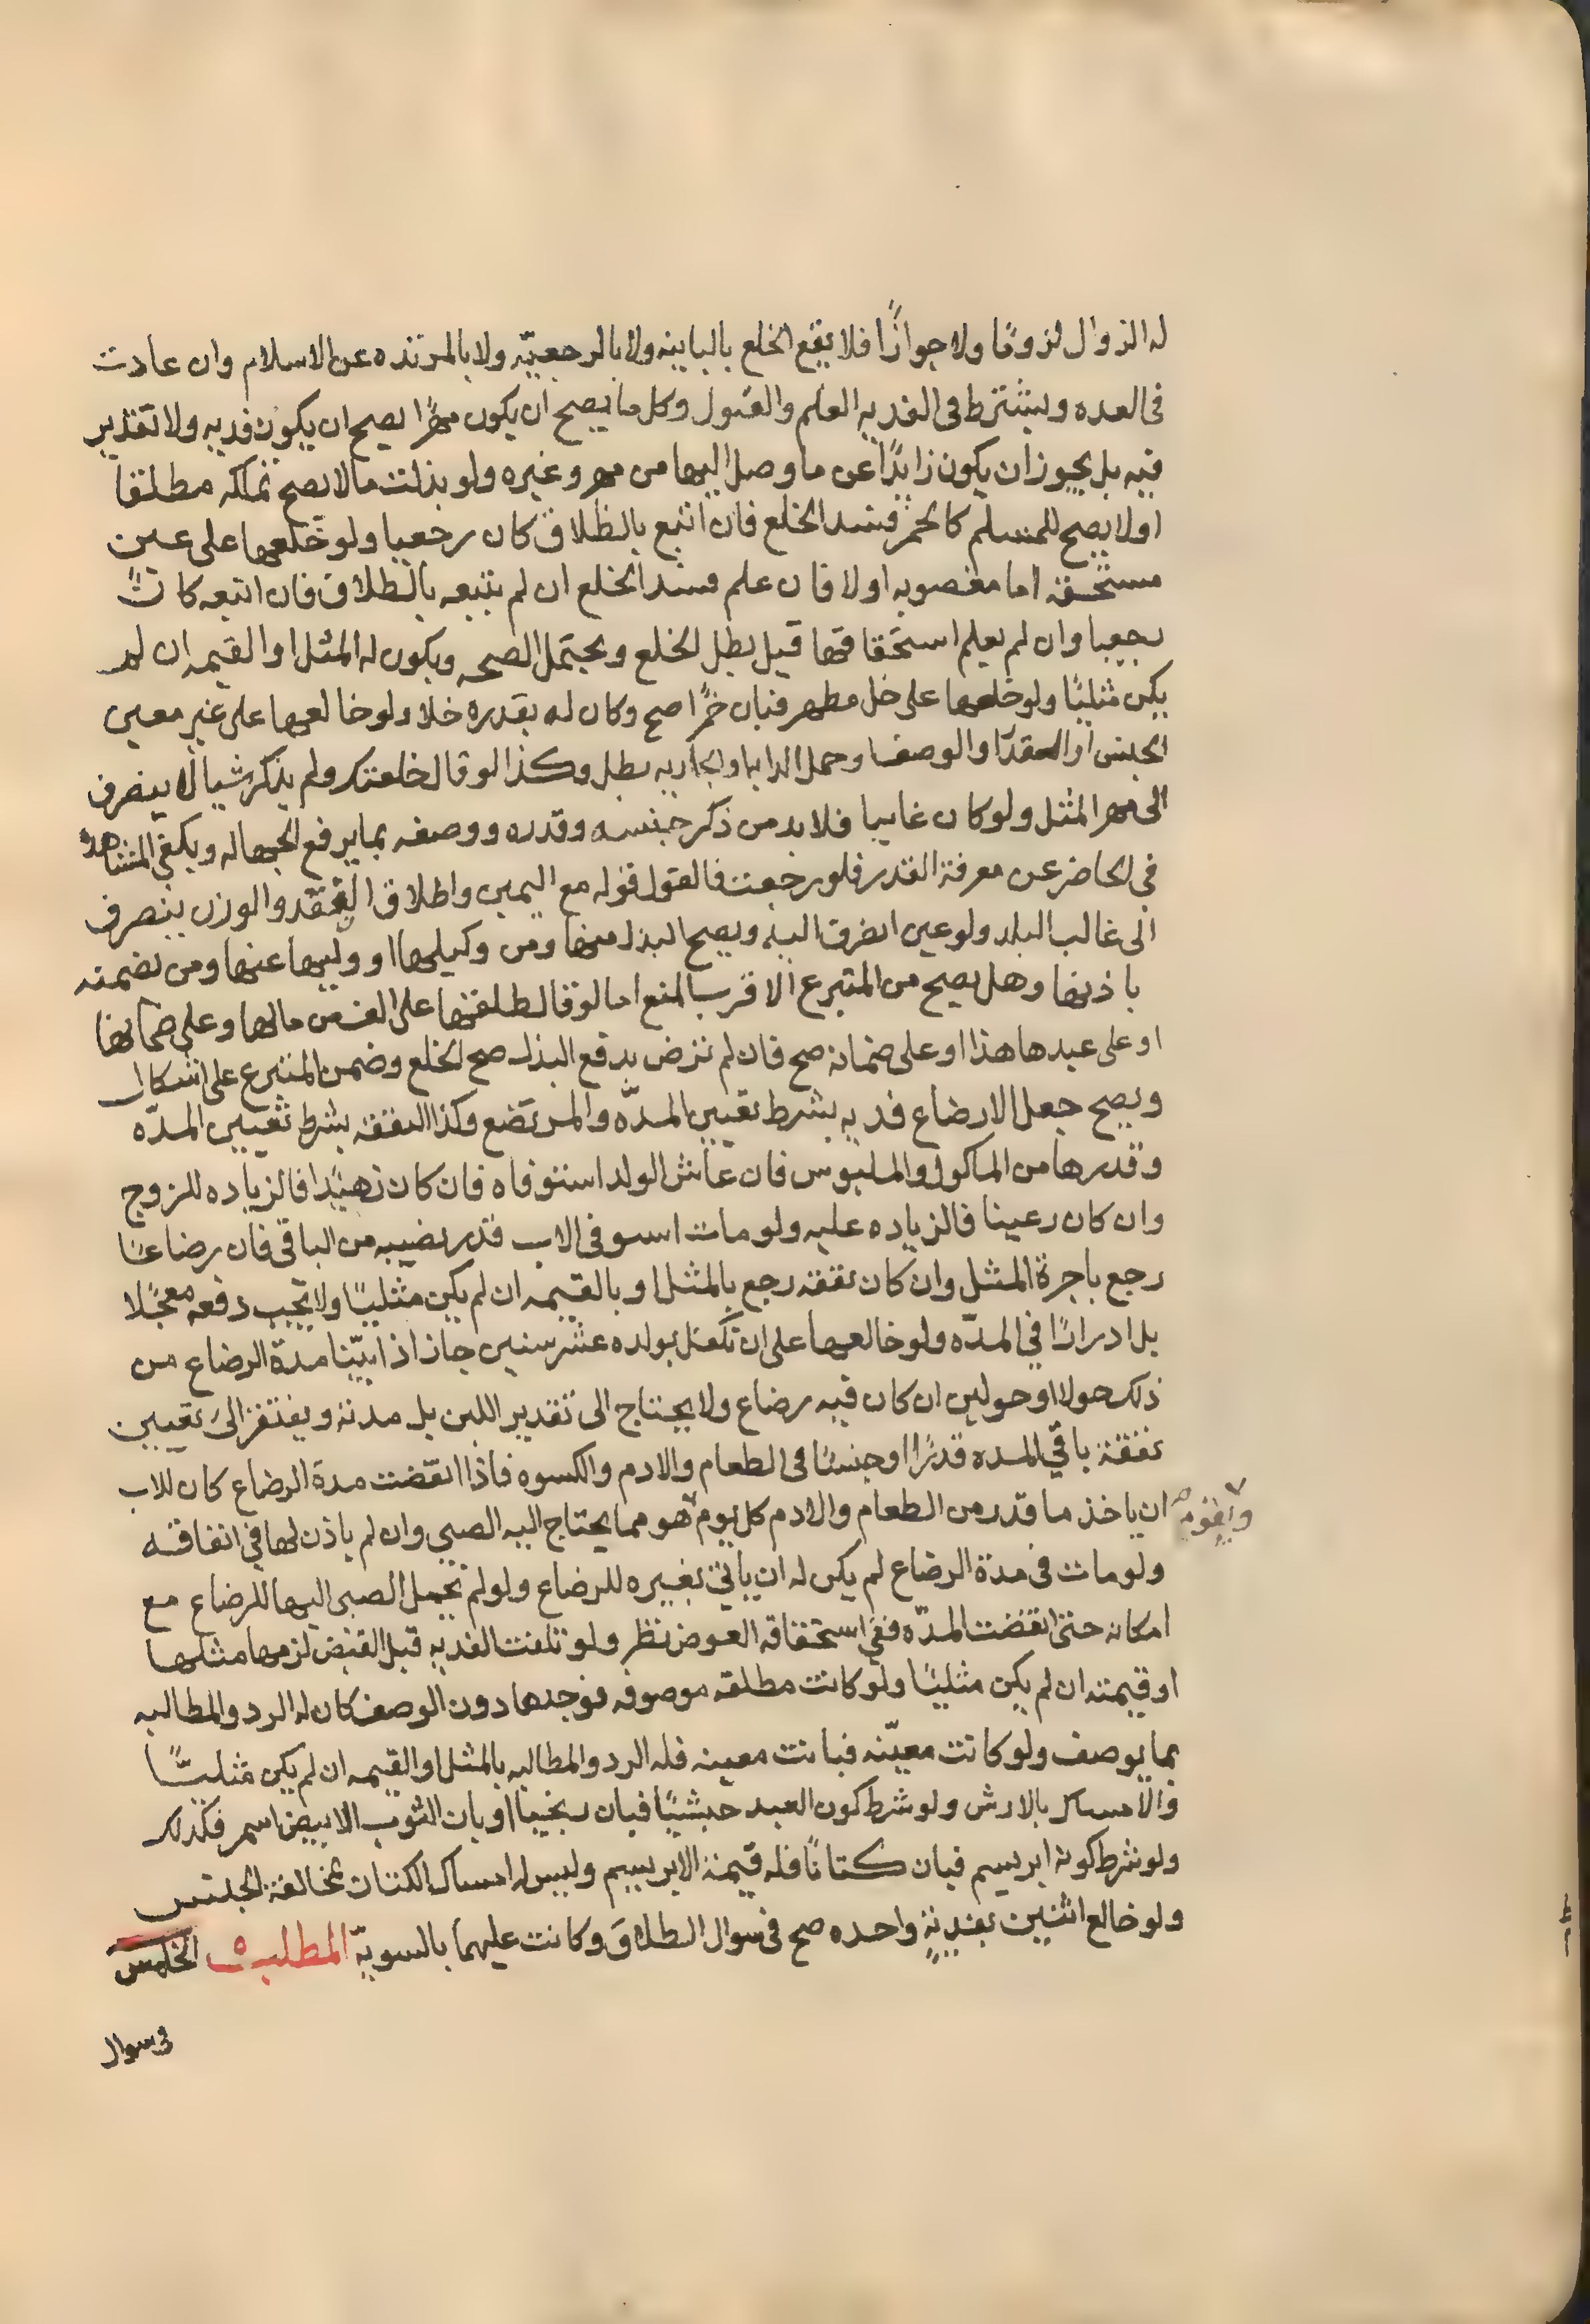 له الزوال لزومًا ولا جوازًا فلا يقع الخلع بالباينه ولا بالرجعيّه ولا بالمرتده عن الاسلام وان عادت
فى العده ويشترط فى الفديه العلم والقبول وكل ما يصح ان يكون مهرًا يصح ان يكون فديه ولا تقدير
فيه بل يجوز ان يكون زايدًا عن ما وصل اليها من مهر وغيره ولو بذلت ما لا يصح تملكه مطلقا
او لا يصح للمسلم كالخمر فسد الخلع فان اتبع بالطلاق كان رجعيا ولو خلعها على عين
مستحقه اما مغصوبه او لا فان علم فسد الخلع ان لم يتبعه بالطلاق فان اتبعه كان
رجعيا وان لم يعلم استحقاقها قيل بطل الخلع ويحتمل الصحه ويكون له المثل او القيمه ان لم
يكن مثليًا ولو خلعها على خل مطهر فبان خمرًا صح وكان له بقدره خلا ولو خالعها على غير معين
الجنس او القدر او الوصف او حمل الدابه او الجاريه بطل وكذا لو قال خلعتك ولم يذكر شيا ولا ينصرف
الى مهر المثل ولو كان غايبا فلا بد من ذكر جنسه وقدره ووصفه بما يرفع الجهاله ويكفى المشاهده
فى الحاضر عن معرفة القدر فلو رجعت فالقول قوله مع اليمين واطلاق النقد والوزن ينصرف
الى غالب البلد ولو عين انصرف اليه ويصح البذل منها ومن وكيلها او وليها عنها ومن تضمنه
باذنها وهل يصح من المتبرع الاقرب المنع اما لو قال طلقتها على الف من مالها وعلى ضمانها
او على عبدها هذا او على ضمانه صح فان لم ترض بدفع البذل صح الخلع وضمن المتبرع على اشكال
ويصح جعل الارضاع فديه بشرط تعيين المدّه والمرتضع وكذا النفقه بشرط تعيين المدّه
وقدرها من الماكول والملبوس فان عاش الولد استوفاه فان كان زهيدًا فالزياده للزوج
وان كان رغيبا فالزياده عليه ولو مات استوفى الاب قدر نصيبه من الباقى فان رضاعًا
رجع باجرة المثل وان كان نفقه رجع بالمثل او بالقيمه ان لم يكن مثليًا ولا يجب دفعه معجلًا
بل ادرارًا في المدّه ولو خالعها على ان تكفل بولده عشر سنين جاز اذا بيّنا مدة الرضاع من
ذلك حولا او حولين ان كان فيه رضاع ولا يحتاج الى تقدير اللبن بل مدته ويفتقر الى تعيين
نفقة باقي المده قدرًا او جنسًا فى الطعام والادم والكسوه فاذا انقضت مدة الرضاع كان للاب
ان ياخذ ما قدر من الطعام والادم كل يوم هو مما يحتاج اليه الصبي وان لم ياذن لها في انفاقه
ويقوم صح
ولو مات فى مدة الرضاع لم يكن له ان ياتى بغيره للرضاع ولو لم تحمل الصبى اليها للرضاع مع
امكانه حتى انقضت المدّه ففي استحقاقه العوض نظر ولو تلفت الفديه قبل القبض لزمها مثلها
او قيمته ان لم يكن مثليًا ولو كانت مطلقه موصوفه فوجدها دون الوصف كان له الرد والمطالبه
بما يوصف ولو كانت معيّنه فبانت معيبه فله الرد والمطالبه بالمثل او القيمه ان لم يكن مثليًّا
والامساك بالارش ولو شرط كون العبد حبشيًا فبان زنجيا او بان الثوب الابيض اسمر فكذلك
ولو شرط كونه ابريسم فبان كتانًا فله قيمة الابريسم وليس له امساك الكتان لمخالفة الجنس
ولو خالع اثنين بفديةٍ واحده صح فى سوال الطلاق وكانت عليهما بالسويّه المطلب ٥ الخامس
فى سوال